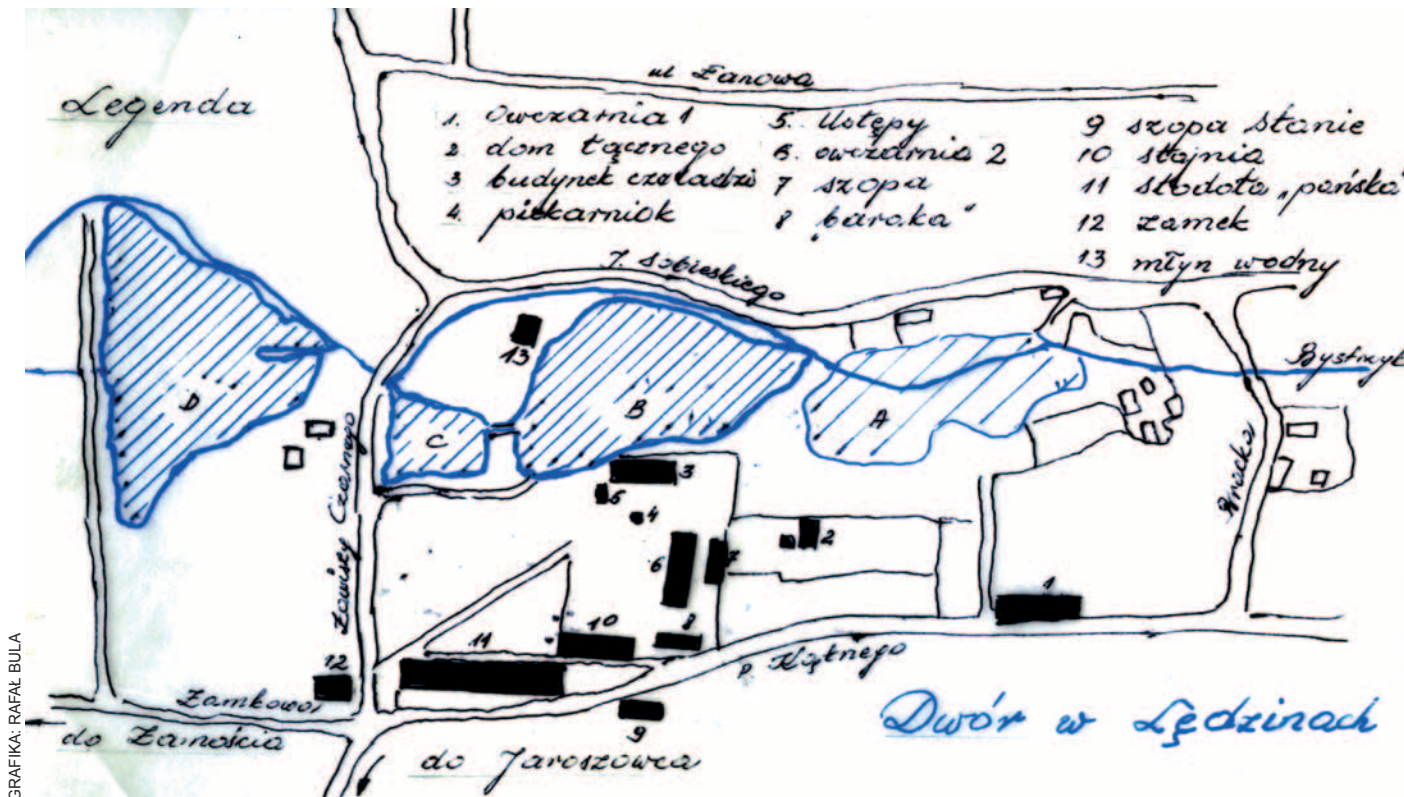 Legenda
ul Łanowa
1. Owczarnia 1
2 dom łącznego
3 budynek czeladzi
4. piekarniok
5. Ustępy
6. owczarnia 2
7 szopa
8 „baraka"
9 szopa stanie
10 stajnia
11 stodoła „pańska"
12 zamek
13 młyn wodny
J. Sobieskiego
Bystrzyk
13
D
B
A
C
Zawiszy Czarnego
Bracka
3
5
4
6
7
2
1
10
8
11
12
P. Kątnego
Zamkowa
9
do Zamościa
do Jaroszowca
Dwór w Lędzinach
GRAFIKA: RAFAŁ BULA